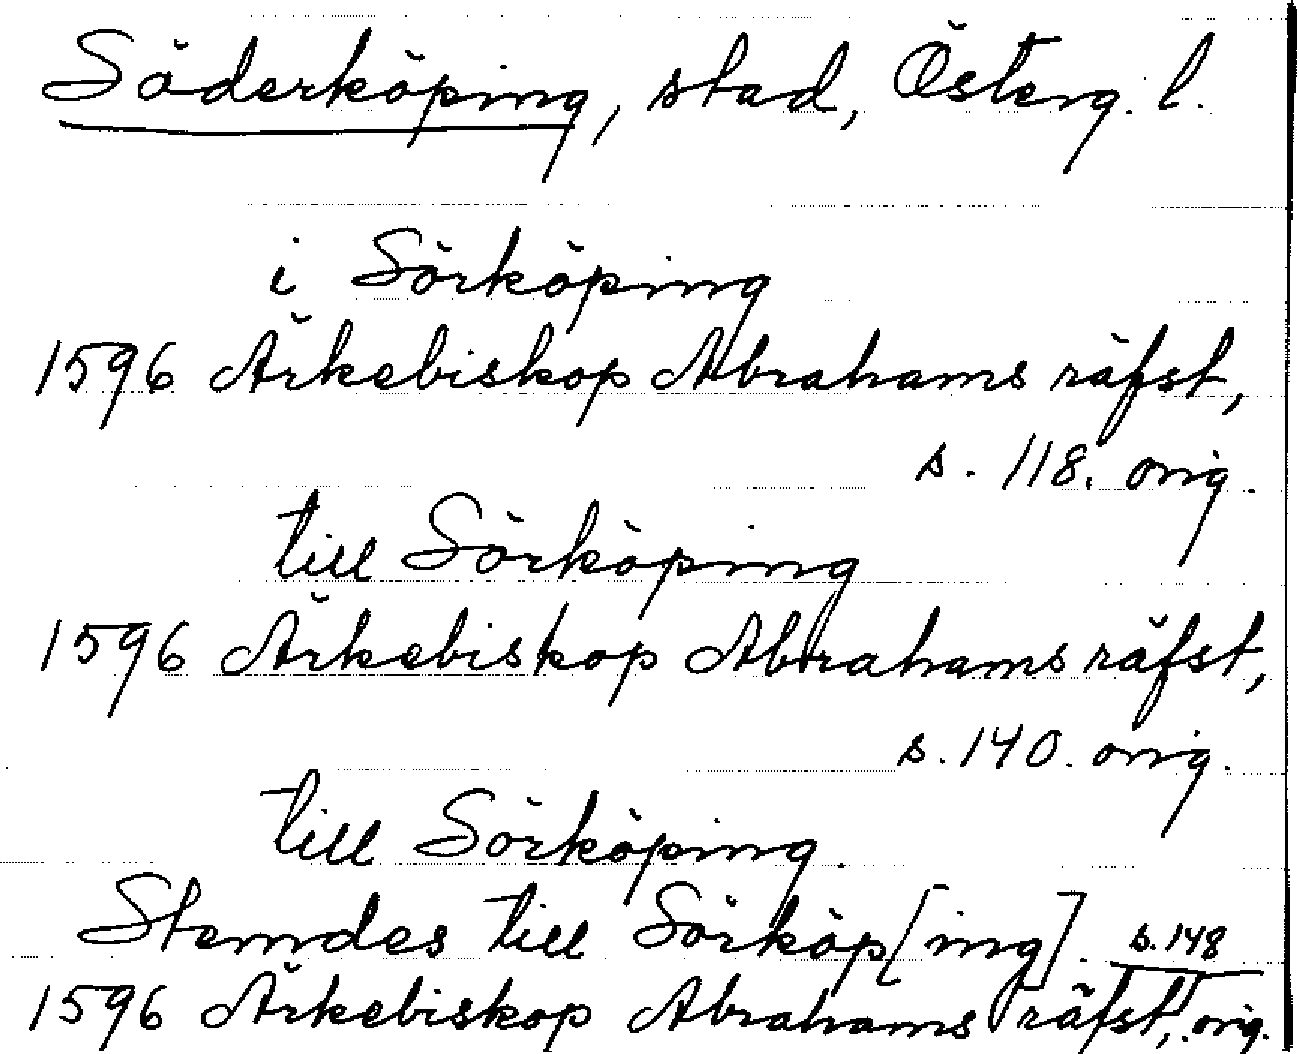 Söderköping, stad, Österg. l.
i Sörköping
1596 Ärkebiskop Abrahams räfst,
s. 118. orig.
till Sörköping
1596 Ärkebiskop Abrahams räfst,
s. 140. orig.
till Sörköping.
Stemdes till Sörköp[ing]. s. 148
1596 Ärkebiskop Abrahams räfst, orig.